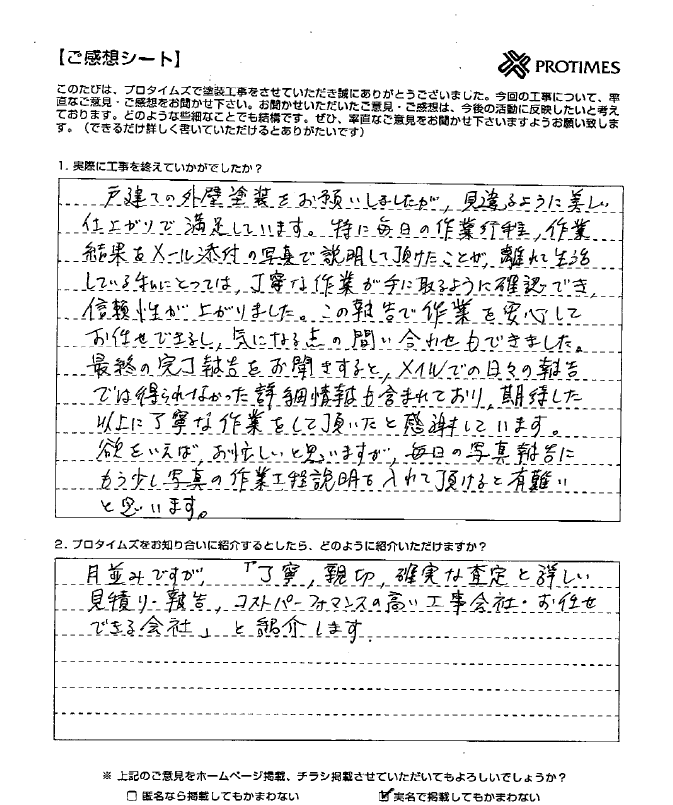 【ご感想シート】
PROTIMES
このたびは、プロタイムズで塗装工事をさせていただき誠にありがとうございました。今回の工事について、率
直なご意見・ご感想をお聞かせ下さい。お聞かせいただいたご意見・ご感想は、今後の活動に反映したいと考え
ております。どのような些細なことでも結構です。ぜひ、率直なご意見をお聞かせ下さいますようお願い致しま
す。（できるだけ詳しく書いていただけるとありがたいです）
1. 実際に工事を終えていかがでしたか？
戸建ての外壁塗装をお願いしましたが、見違るように美しい
仕上がりで満足しています。特に毎日の作業行程,作業
結果をメール添付の写真で説明して頂けたことが、離れて生活
している私にとっては、丁寧な作業が手に取るように確認でき、
信頼性が上がりました。この報告で作業を安心して
お任せできるし、気になる点の問い合わせもできました。
最終の完了報告をお聞きすると、メイルでの日々の報告
では得られなかった詳細情報も含まれており、期待した
以上に丁寧な作業をして頂いたと感謝しています。
欲をいえば、お忙しいと思いますが、毎日の写真報告に
もう少し写真の作業工程説明も入れて頂けると有難い
と思います。
2. プロタイムズをお知り合いに紹介するとしたら、どのように紹介いただけますか？
月並みですが、「丁寧，親切，確実な査定と詳しい
見積り・報告，コストパーフォマンスの高い工事会社・お任せ
できる会社」と紹介します.
※ 上記のご意見をホームページ掲載、チラシ掲載させていただいてもよろしいでしょうか？
□ 匿名なら掲載してもかまわない ☑ 実名で掲載してもかまわない